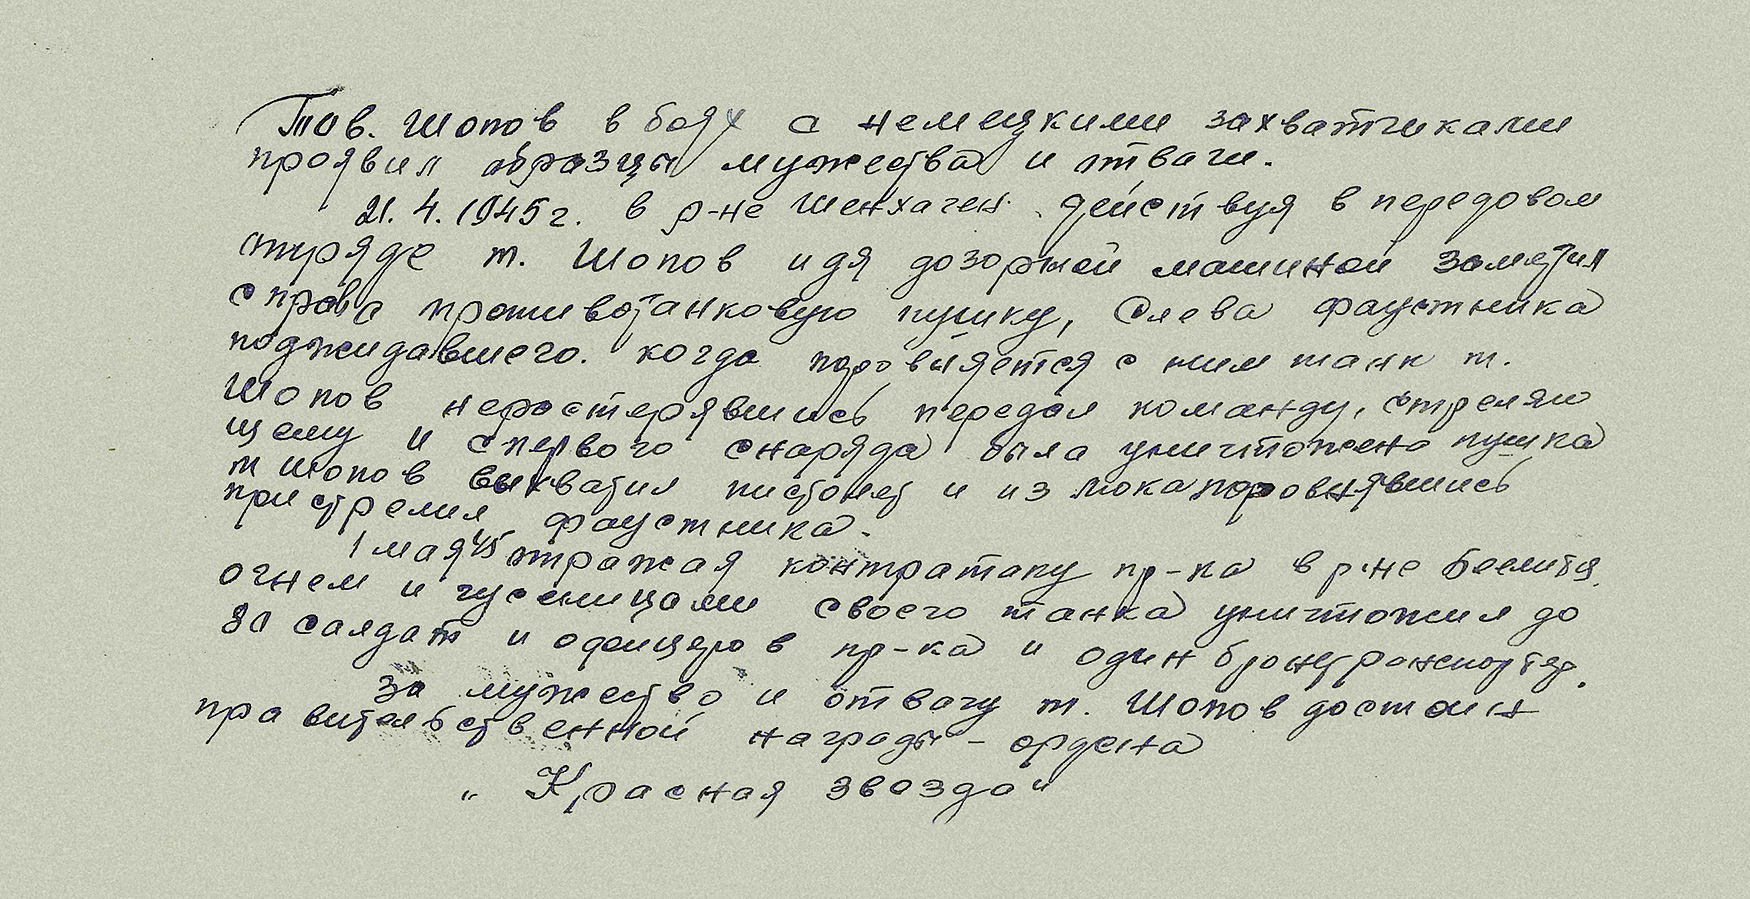 Тов. Шопов в боях с немецкими захватчиками
проявил образцы мужества и отваги.
21.4.1945г. в р-не Шенхаген. действуя в передовом
отряде т. Шопов идя дозорной машиной заметил
справа противотанковую пушку, слева фаустника
поджидавшего. когда поровняется с ним танк т.
Шопов нерастерявшись передал команду, стреляю
щему и с первого снаряда была уничтожена пушка
т Шопов выхватил пистолет и из люка поровнявшись
пристрелил фаустника.
1 мая 45 отражая контратаку пр-ка в р-не
огнем и гусеницами своего танка уничтожил до
30 салдат и офицеров пр-ка и один бронетранспортер.
За мужество и отвагу т. Шопов достоин
правительственной награды - ордена
„Красная звезда"